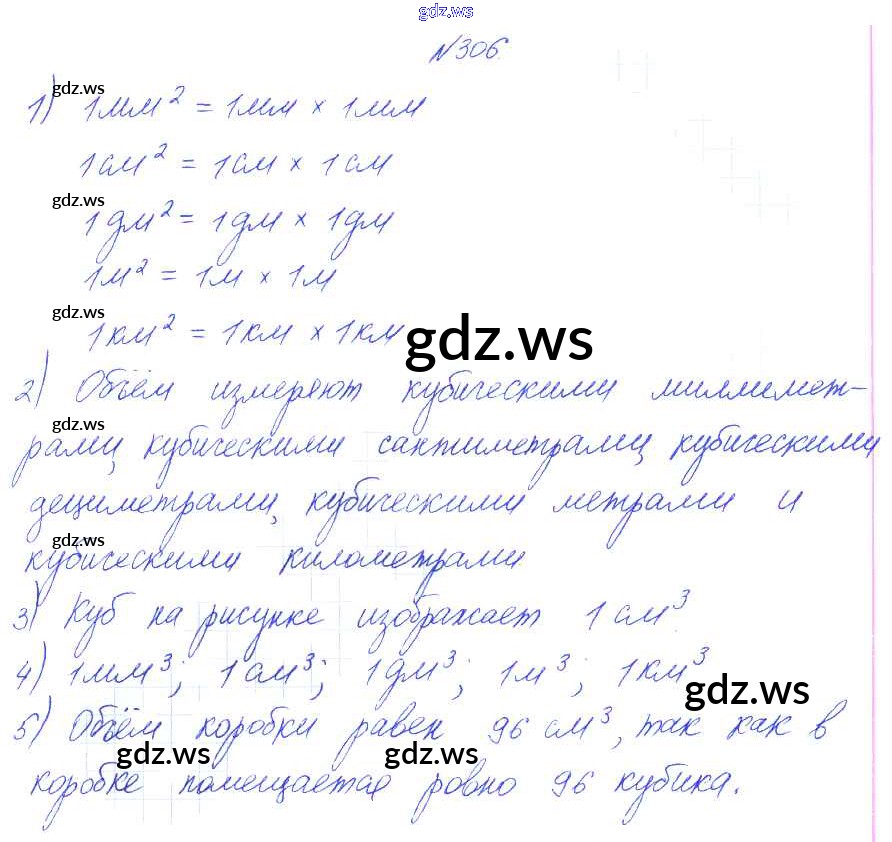 gdz.ws
№306.
gdz.ws
1) 1мм² = 1мм × 1мм
1см² = 1см × 1см
gdz.ws
1дм² = 1дм × 1дм
1м² = 1м × 1м
gdz.ws
1км² = 1км × 1км
gdz.ws
2) Объём измеряют кубическими миллимет-
gdz.ws
рами, кубическими сантиметрами, кубическими
дециметрами, кубическими метрами и
gdz.ws
кубическими километрами.
3) Куб на рисунке изображает 1 см³.
4) 1мм³; 1см³; 1дм³; 1м³; 1км³
gdz.ws
5) Объём коробки равен 96 см³, так как в
gdz.ws gdz.ws
коробке помещается ровно 96 кубика.